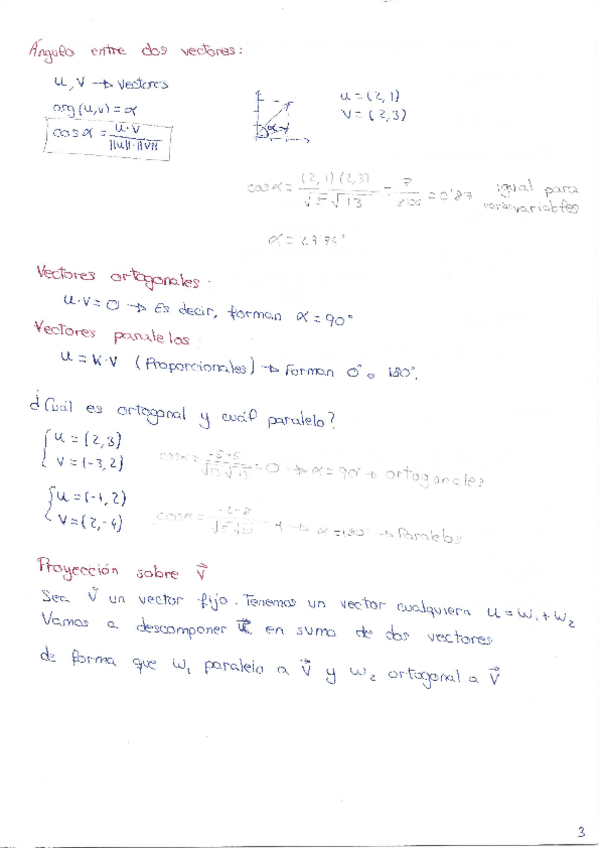 Ángulo entre dos vectores:
u, v → Vectores
ang(u,v) = α
cos α = u·v / ||u||·||v||
u = (2,1)
v = (2,3)
cos α = (2,1)(2,3) / √5 √13 = 7 / = 0'87 igual para variables
Vectores ortogonales:
u·v = 0 → Es decir, forman α = 90°
Vectores paralelos
u = K·v (Proporcionales) → Forman 0° o 180°.
¿Cuál es ortogonal y cuál paralelo?
u = (2,3)
v = (-3,2)
cos α = / √13 √13 = 0 → α = 90° → ortogonales
u = (-1,2)
v = (2,-4)
cos α = -2-8 / → α = 180° → Paralelos
Proyección sobre v⃗
Sea v⃗ un vector fijo. Tenemos un vector cualquiera u = w₁ + w₂
Vamos a descomponer u⃗ en suma de dos vectores
de forma que w₁ paralelo a v⃗ y w₂ ortogonal a v⃗
3